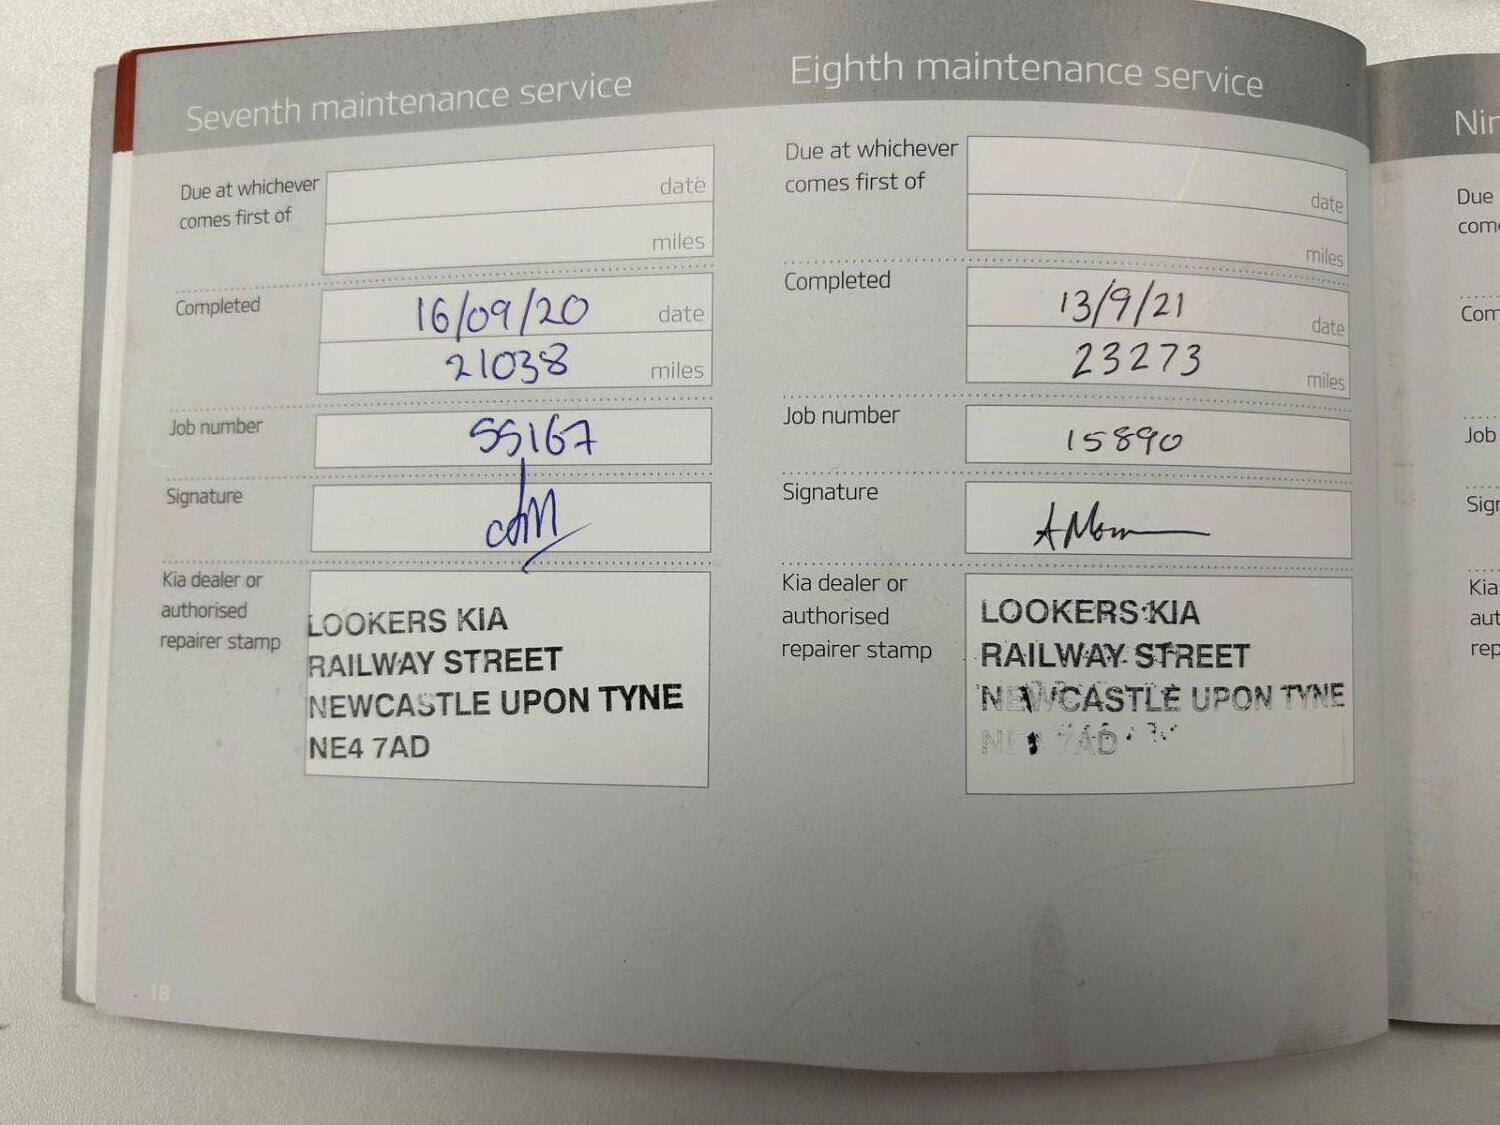 Seventh maintenance service
Due at whichever
comes first of
date
miles
Completed
16/09/20 date
21038 miles
Job number
55167
Signature
Kia dealer or
authorised
repairer stamp
LOOKERS KIA
RAILWAY STREET
NEWCASTLE UPON TYNE
NE4 7AD
18
Eighth maintenance service
Due at whichever
comes first of
date
miles
Completed
13/9/21 date
23273 miles
Job number
15890
Signature
Kia dealer or
authorised
repairer stamp
LOOKERS KIA
RAILWAY STREET
NEWCASTLE UPON TYNE
NE4 7AD
Nin
Due
com
Com
Job
Sign
Kia
aut
rep